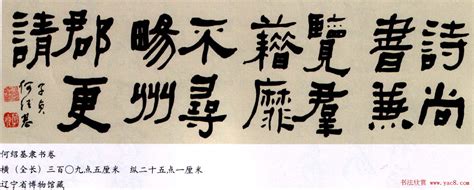 詩尚
書兼
覽羣
藉靡
不尋
暘州
郡更
請
子貞
何紹基
何绍基隶书卷
横（全长）三百〇九点五厘米 纵二十五点一厘米
辽宁省博物馆藏
书法欣赏 www.yac8.com